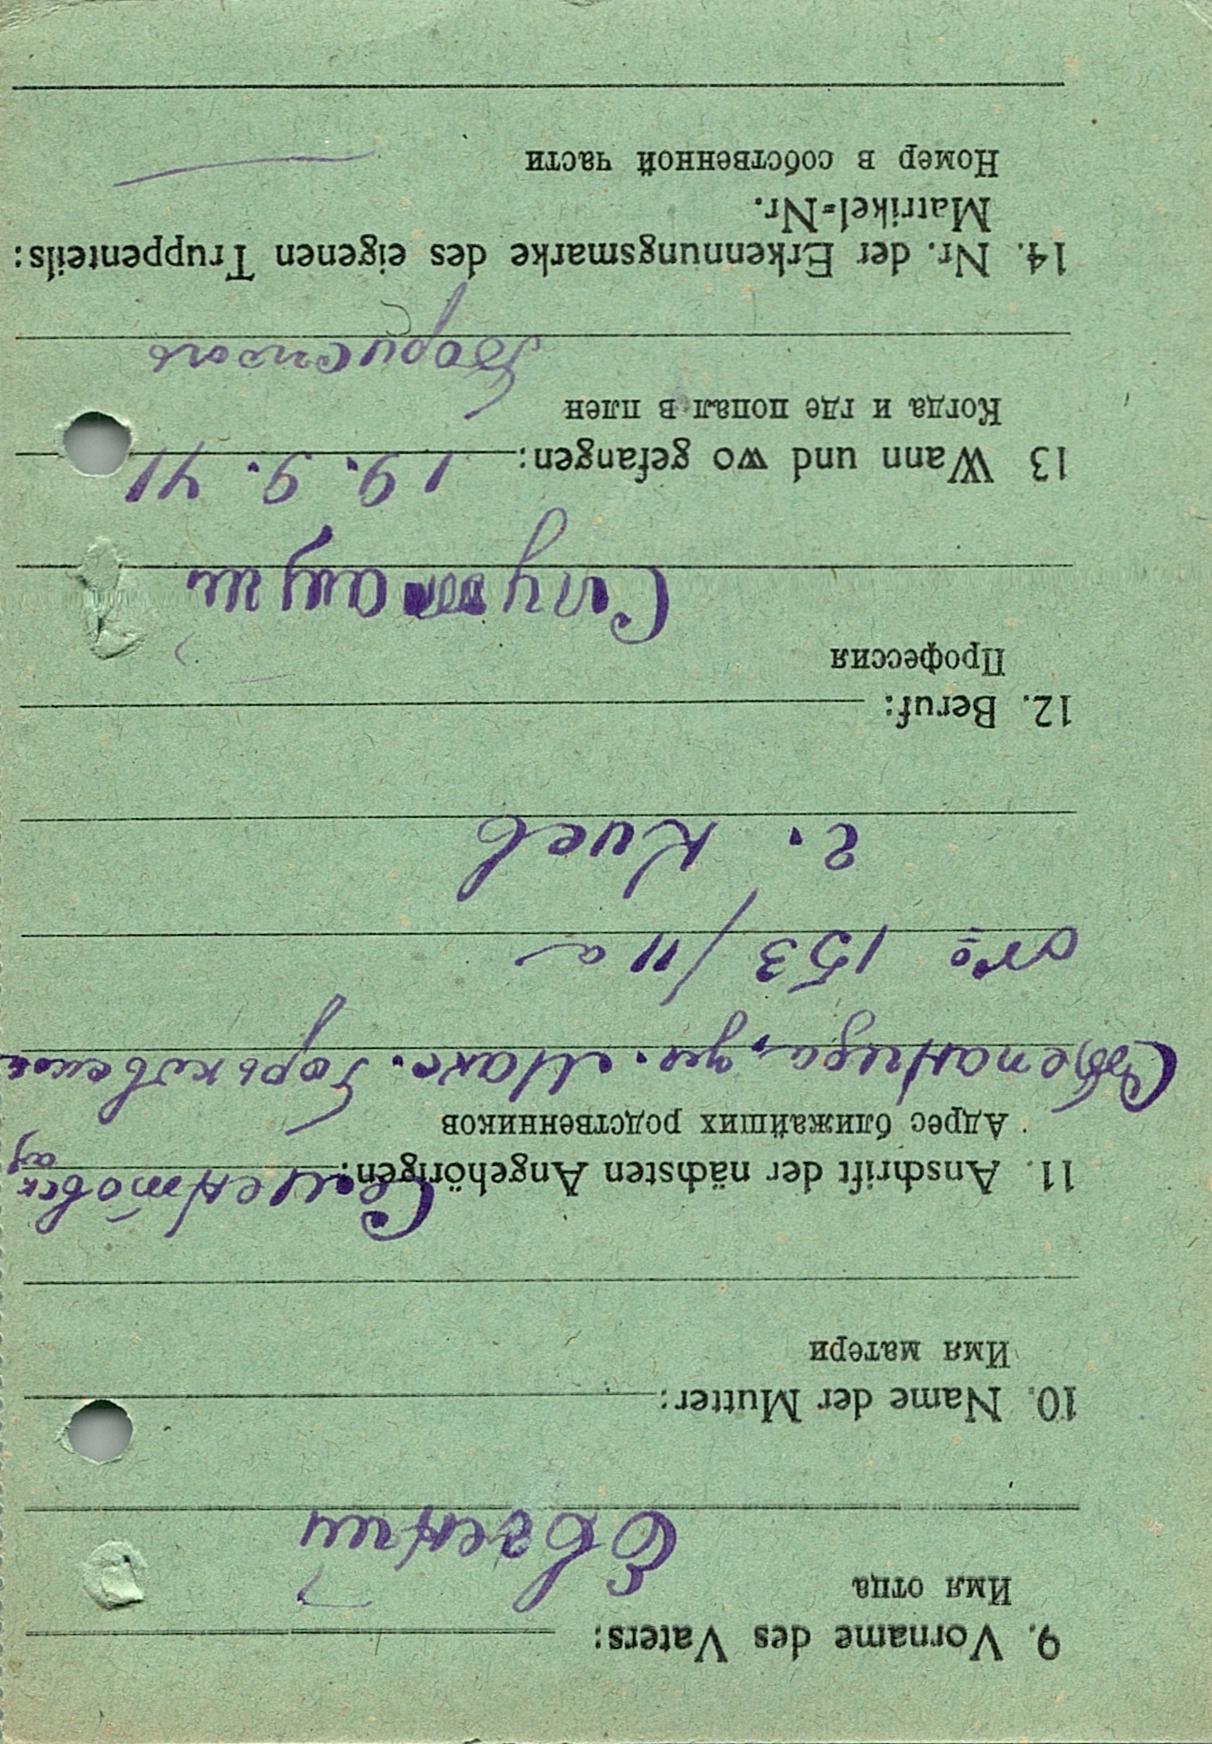 9. Vorname des Vaters:
Имя отца
Евгений
10. Name der Mutter:
Имя матери
11. Anschrift der nächsten Angehörigen:
Адрес ближайших родственников
ул. Макс. Горьковская
№ 153/11а
г. Киев
12. Beruf:
Профессия
Служащий
13 Wann und wo gefangen: 19.9.41
Когда и где попал в плен
Борисполь
14. Nr. der Erkennungsmarke des eigenen Truppenteils:
Matrikel=Nr.
Номер в собственной части